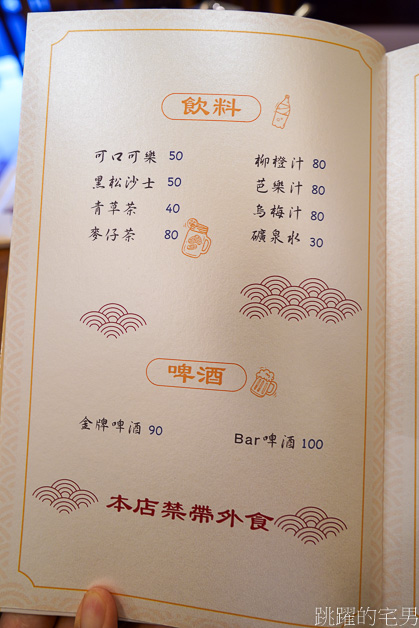 飲料
可口可樂 50
黑松沙士 50
青草茶 40
麥仔茶 80
柳橙汁 80
芭樂汁 80
烏梅汁 80
礦泉水 30
啤酒
金牌啤酒 90
Bar啤酒 100
本店禁帶外食
跳躍的宅男